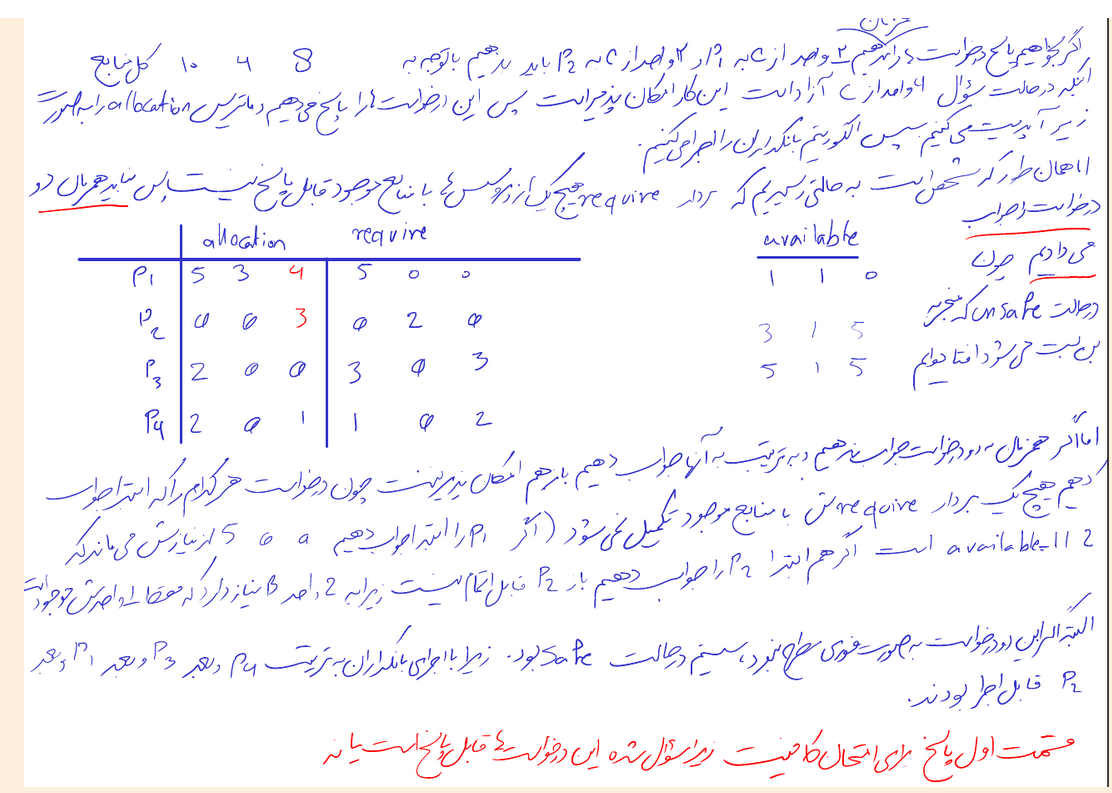 همزمان
اگر بخواهیم پاسخ درخواست ها را بدهیم 2 واحد از C به P1 و 2 واحد از C به P2 باید بدهیم باتوجه به 8 4 10 کل منابع
اینکه در حالت سؤال 4 واحد از C آزاد است این کار امکان پذیر است پس این درخواست ها را پاسخ می دهیم و ماتریس allocation را به صورت
زیر آپدیت می کنیم سپس الگوریتم بانکداران را اجرا می کنیم.
اما همان طور که مشخص است به حالتی رسیدیم که بردار require هیچ یک از پروسس ها با منابع موجود قابل پاسخ نیست پس نباید همزمان دو
درخواست را جواب
می دادیم چون
در حالت unsafe که منجر به
بن بست می شود افتاده ایم
allocation require available
P1 5 3 4 5 0 0 1 1 0
P2 0 0 3 0 2 0 3 1 5
P3 2 0 0 3 0 3 5 1 5
P4 2 0 1 1 0 2
اما اگر همزمان به دو درخواست جواب ندهیم و به ترتیب به آنها جواب دهیم باز هم امکان پذیر نیست چون درخواست هر کدام را که ابتدا جواب
دهیم هیچ یک بردار require ش با منابع موجود تکمیل نمی شود (اگر P1 را ابتدا جواب دهیم 5 0 0 از نیازش می ماند که
available=112 است اگر هم ابتدا P2 را جواب دهیم باز P2 قابل اتمام نیست زیرا به 2 واحد B نیاز دارد که فقط 1 واحدش موجود است
البته اگر این دو درخواست به صورت فوری مطرح نمی شد، سیستم در حالت safe بود. زیرا با اجرای بانکداران به ترتیب P4 و بعد P3 و بعد P1 و بعد
P2 قابل اجرا بودند.
قسمت اول پاسخ برای امتحان کافیست زیرا سؤال شده این درخواست ها قابل پاسخ است یا نه